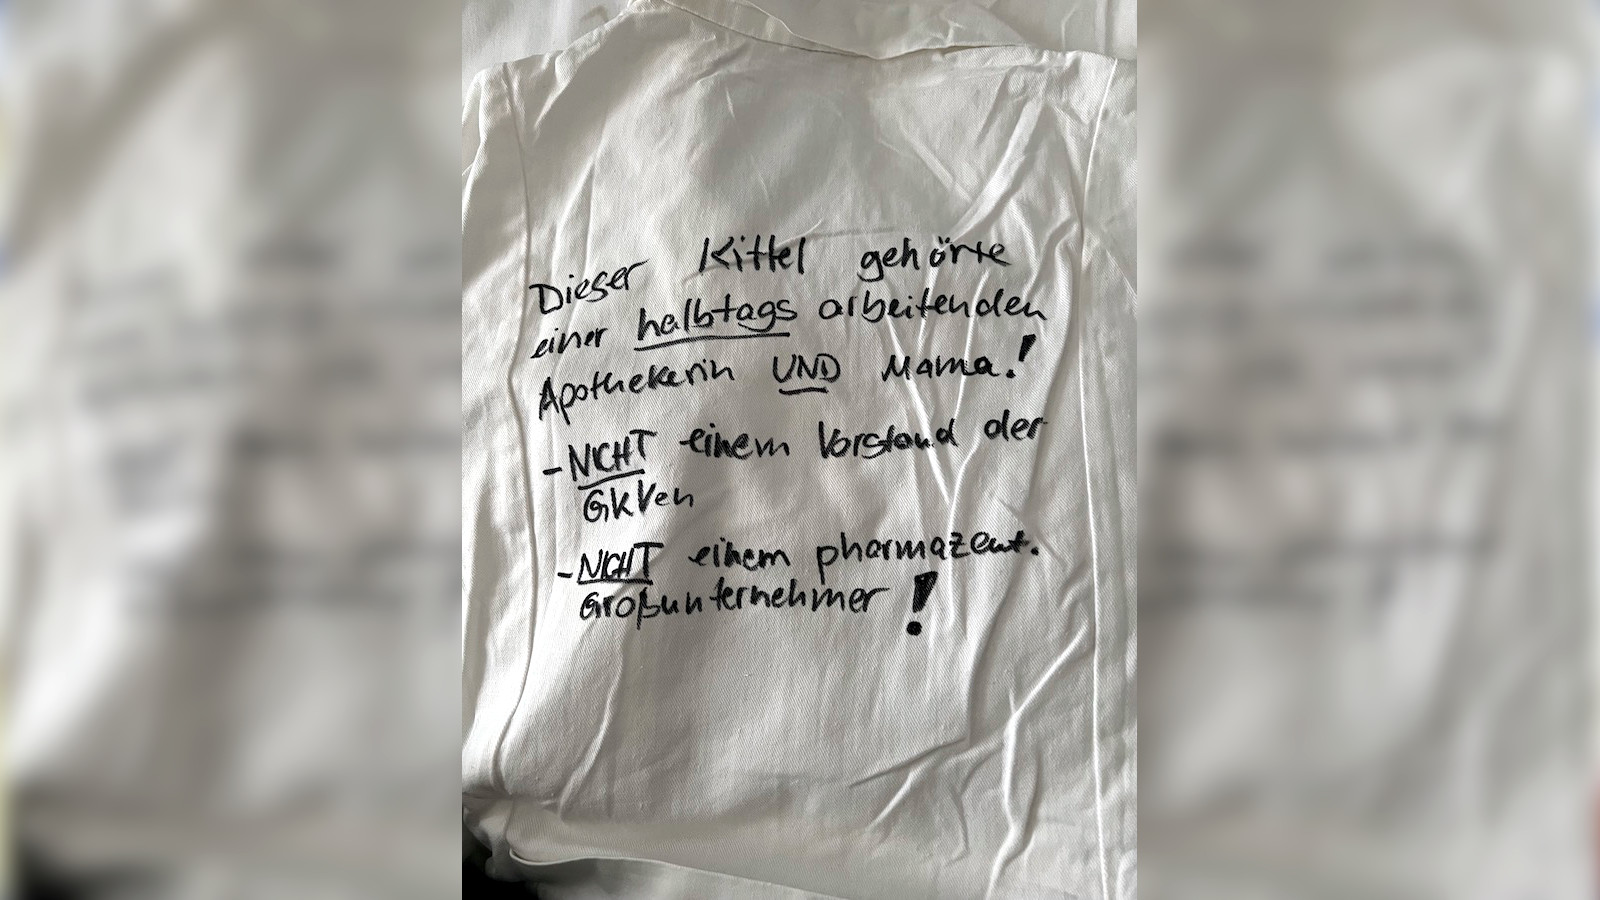 Dieser Kittel gehörte
einer halbtags arbeitenden
Apothekerin UND Mama!
- NICHT einem Vorstand der
GKVen
- NICHT einem pharmazeut.
Großunternehmer!